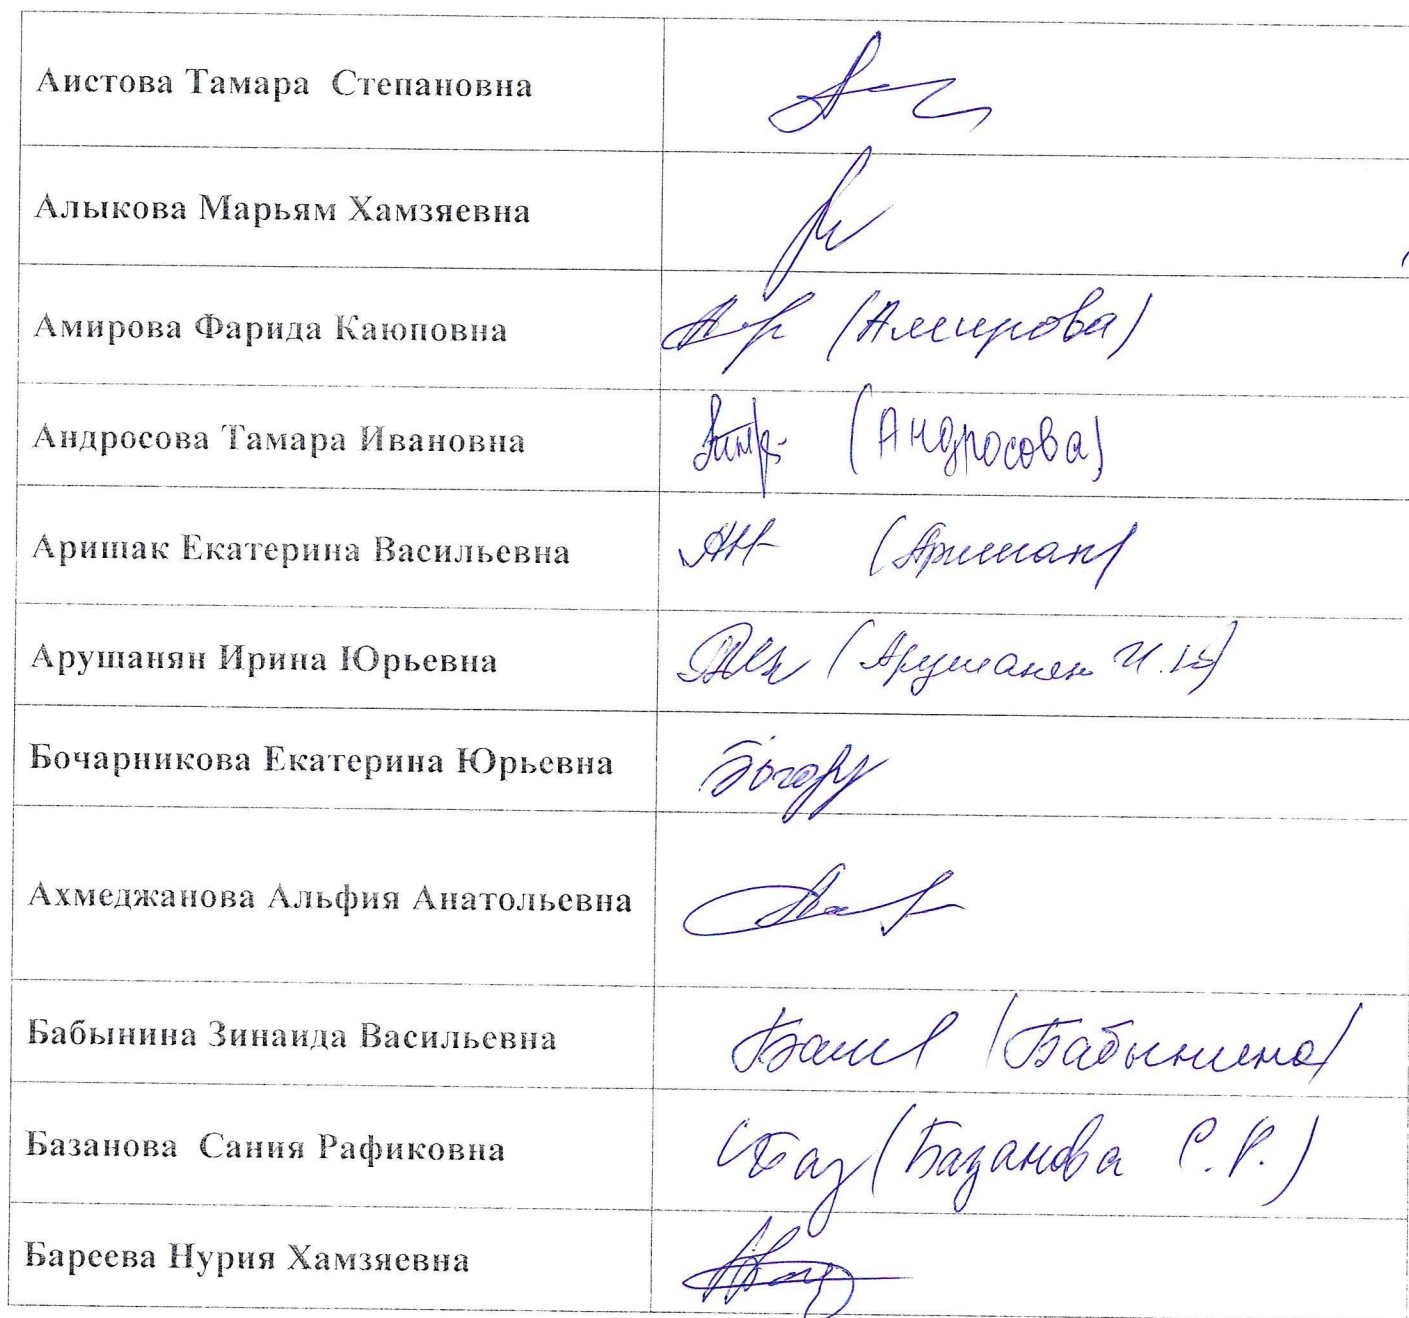 Аистова Тамара Степановна
Алыкова Марьям Хамзяевна
Амирова Фарида Каюповна (Амирова)
Андросова Тамара Ивановна (Андросова)
Аришак Екатерина Васильевна (Аришак)
Арушанян Ирина Юрьевна (Арушанян И.Ю)
Бочарникова Екатерина Юрьевна
Ахмеджанова Альфия Анатольевна
Бабынина Зинаида Васильевна (Бабынина)
Базанова Сания Рафиковна Баз (Базанова С.Р.)
Бареева Нурия Хамзяевна